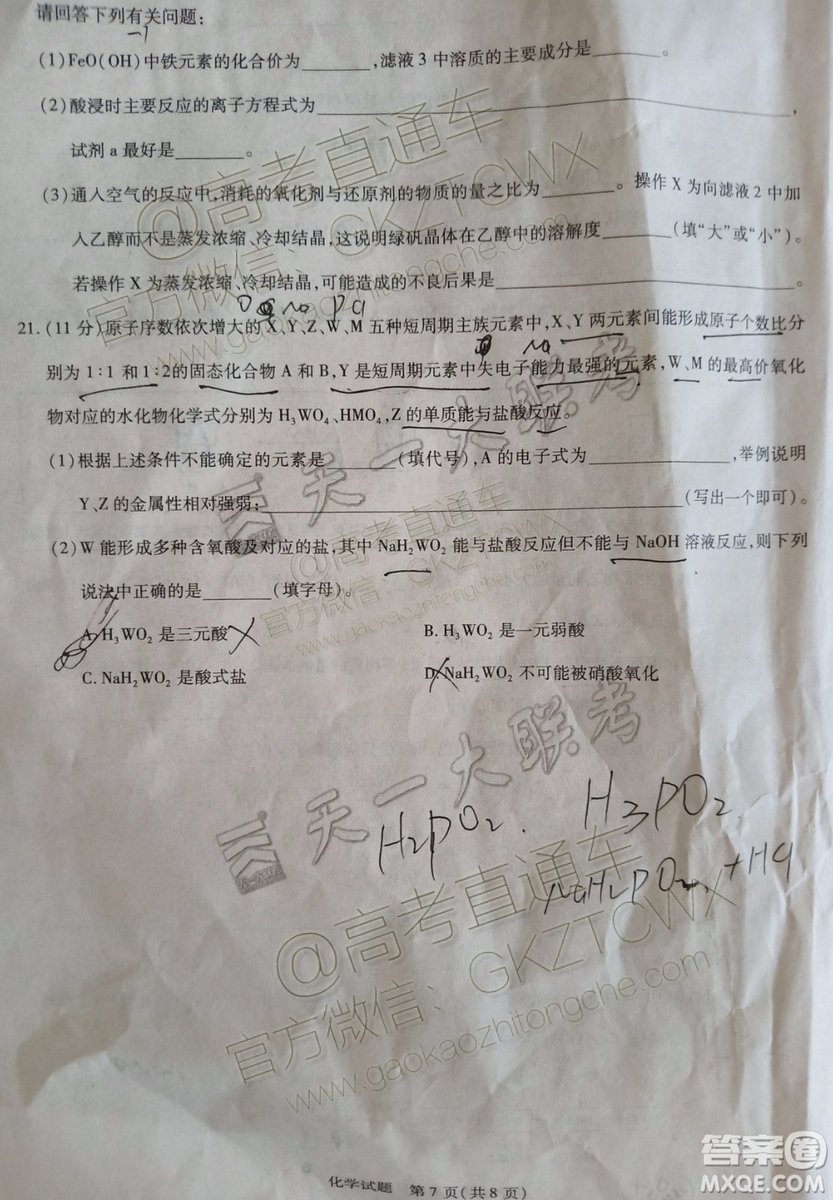 请回答下列有关问题：
(1)FeO(OH)中铁元素的化合价为______,滤液3中溶质的主要成分是______。
(2)酸浸时主要反应的离子方程式为______,
试剂a最好是______。
(3)通入空气的反应中,消耗的氧化剂与还原剂的物质的量之比为______。操作X为向滤液2中加
入乙醇而不是蒸发浓缩、冷却结晶,这说明绿矾晶体在乙醇中的溶解度______(填“大”或“小”)。
若操作X为蒸发浓缩、冷却结晶,可能造成的不良后果是______。
21.(11分)原子序数依次增大的X、Y、Z、W、M五种短周期主族元素中,X、Y两元素间能形成原子个数比分
别为1∶1和1∶2的固态化合物A和B,Y是短周期元素中失电子能力最强的元素,W、M的最高价氧化
物对应的水化物化学式分别为H₃WO₄、HMO₄,Z的单质能与盐酸反应。
(1)根据上述条件不能确定的元素是______(填代号),A的电子式为______,举例说明
Y、Z的金属性相对强弱:______(写出一个即可)。
(2)W能形成多种含氧酸及对应的盐,其中NaH₂WO₂能与盐酸反应但不能与NaOH溶液反应,则下列
说法中正确的是______(填字母)。
A.H₃WO₂是三元酸
B.H₃WO₂是一元弱酸
C.NaH₂WO₂是酸式盐
D.NaH₂WO₂不可能被硝酸氧化
H₂PO₂.
H₃PO₂
NaH₂PO₂ +HCl
@高考直通车
官方微信：GKZTCWX
www.gaokaozhitongche.com
天一大联考
天一大联考
@高考直通车
官方微信：GKZTCWX
www.gaokaozhitongche.com
化学试题 第7页(共8页)
答案圈
MXQE.COM